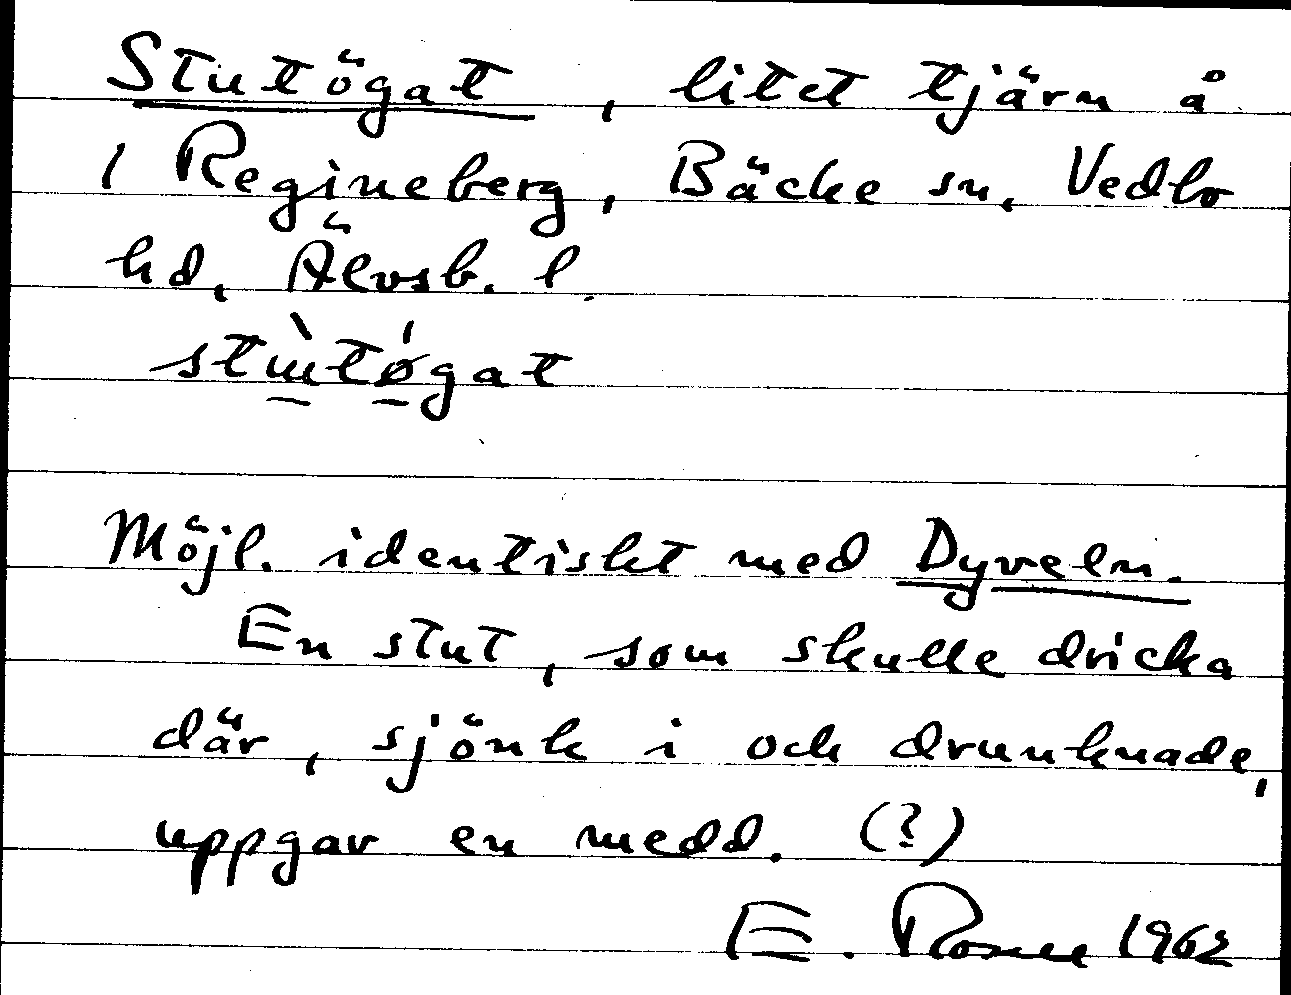 Stutögat, litet tjärn å
1 Regineberg, Bäcke sn, Vedbo
hd, Älvsb. l.
stù̱tǿ̱gat
Möjl. identiskt med Dyveln.
En stut, som skulle dricka
där, sjönk i och drunknade,
uppgav en medd. (?)
E. Rosell 1962